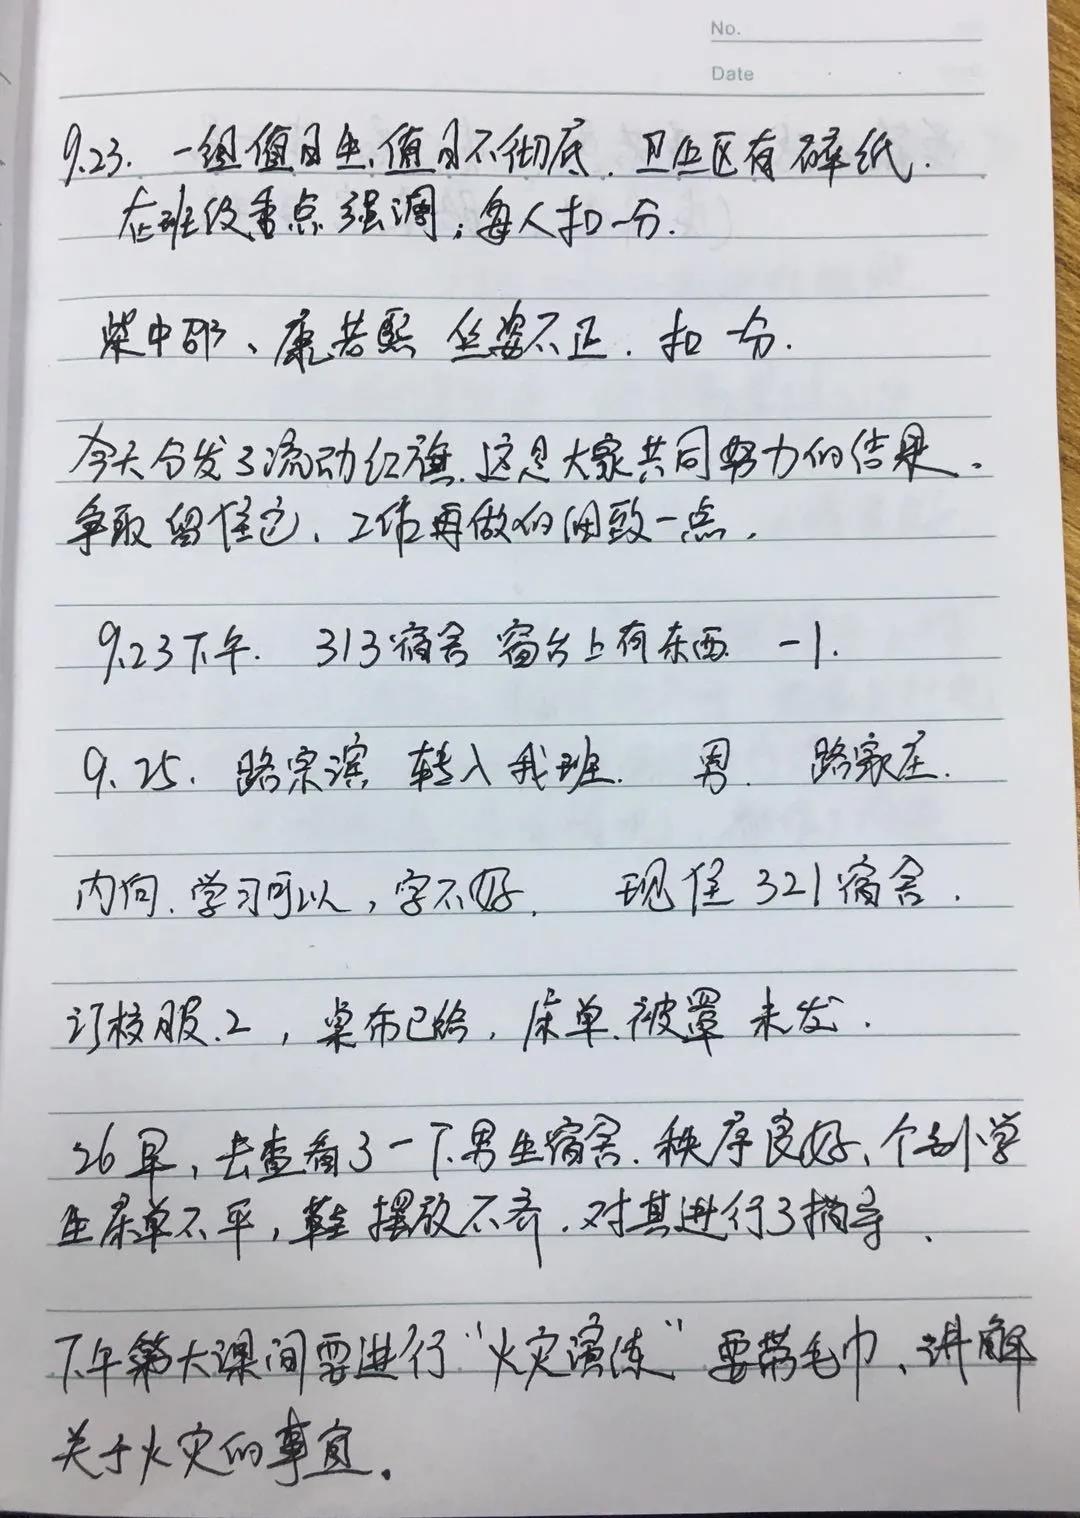 No.
Date
9.23. 一组值日生,值日不彻底.卫生区有碎纸.
在班级重点强调,每人扣一分.
柴中邵、康若熙 坐姿不正.扣一分.
今天分发了流动红旗.这是大家共同努力的结果.
争取留住它.工作再做的细致一点.
9.23下午. 313宿舍 窗台上有东西 -1.
9.25. 路宗滨 转入我班. 男. 路家庄.
内向.学习可以,字不好. 现住321宿舍.
订校服.2,桌布已给,床单.被罩 未发.
26早,去查看了一下男生宿舍.秩序良好、个别学
生床单不平,鞋摆放不齐.对其进行了指导.
下午第大课间要进行“火灾演练”要带毛巾、讲解
关于火灾的事宜.